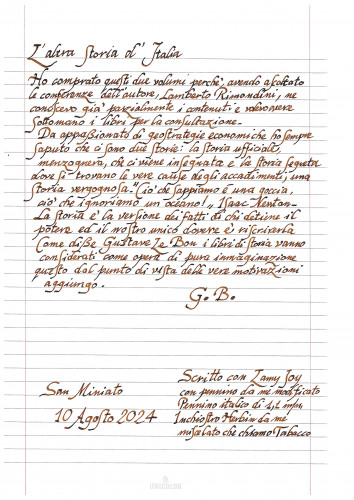 L'altra Storia d'Italia
Ho comprato questi due volumi perchè, avendo ascoltato
le conferenze dell'autore, Lamberto Rimondini, ne
conoscevo già parzialmente i contenuti e volevo avere
sottomano i libri per la consultazione.
Da appassionato di geostrategie economiche ho sempre
saputo che ci sono due storie: la storia ufficiale,
menzognera, che ci viene insegnata e la storia segreta
dove si trovano le vere cause degli accadimenti, una
storia vergognosa. "Ciò che sappiamo è una goccia,
ciò che ignoriamo un oceano!", Isaac Newton.
La storia è la versione dei fatti di chi detiene il
potere ed il nostro unico dovere è riscriverla
Come disse Gustave Le Bon i libri di storia vanno
considerati come opera di pura immaginazione
questo dal punto di vista delle vere motivazioni
aggiungo.
G. B.
San Miniato
10 Agosto 2024
Scritto con Lamy Joy
con pennino da me modificato
Pennino italico di 1,1 mm.
Inchiostro Herbin da me
miscelato che chiamo Tabacco